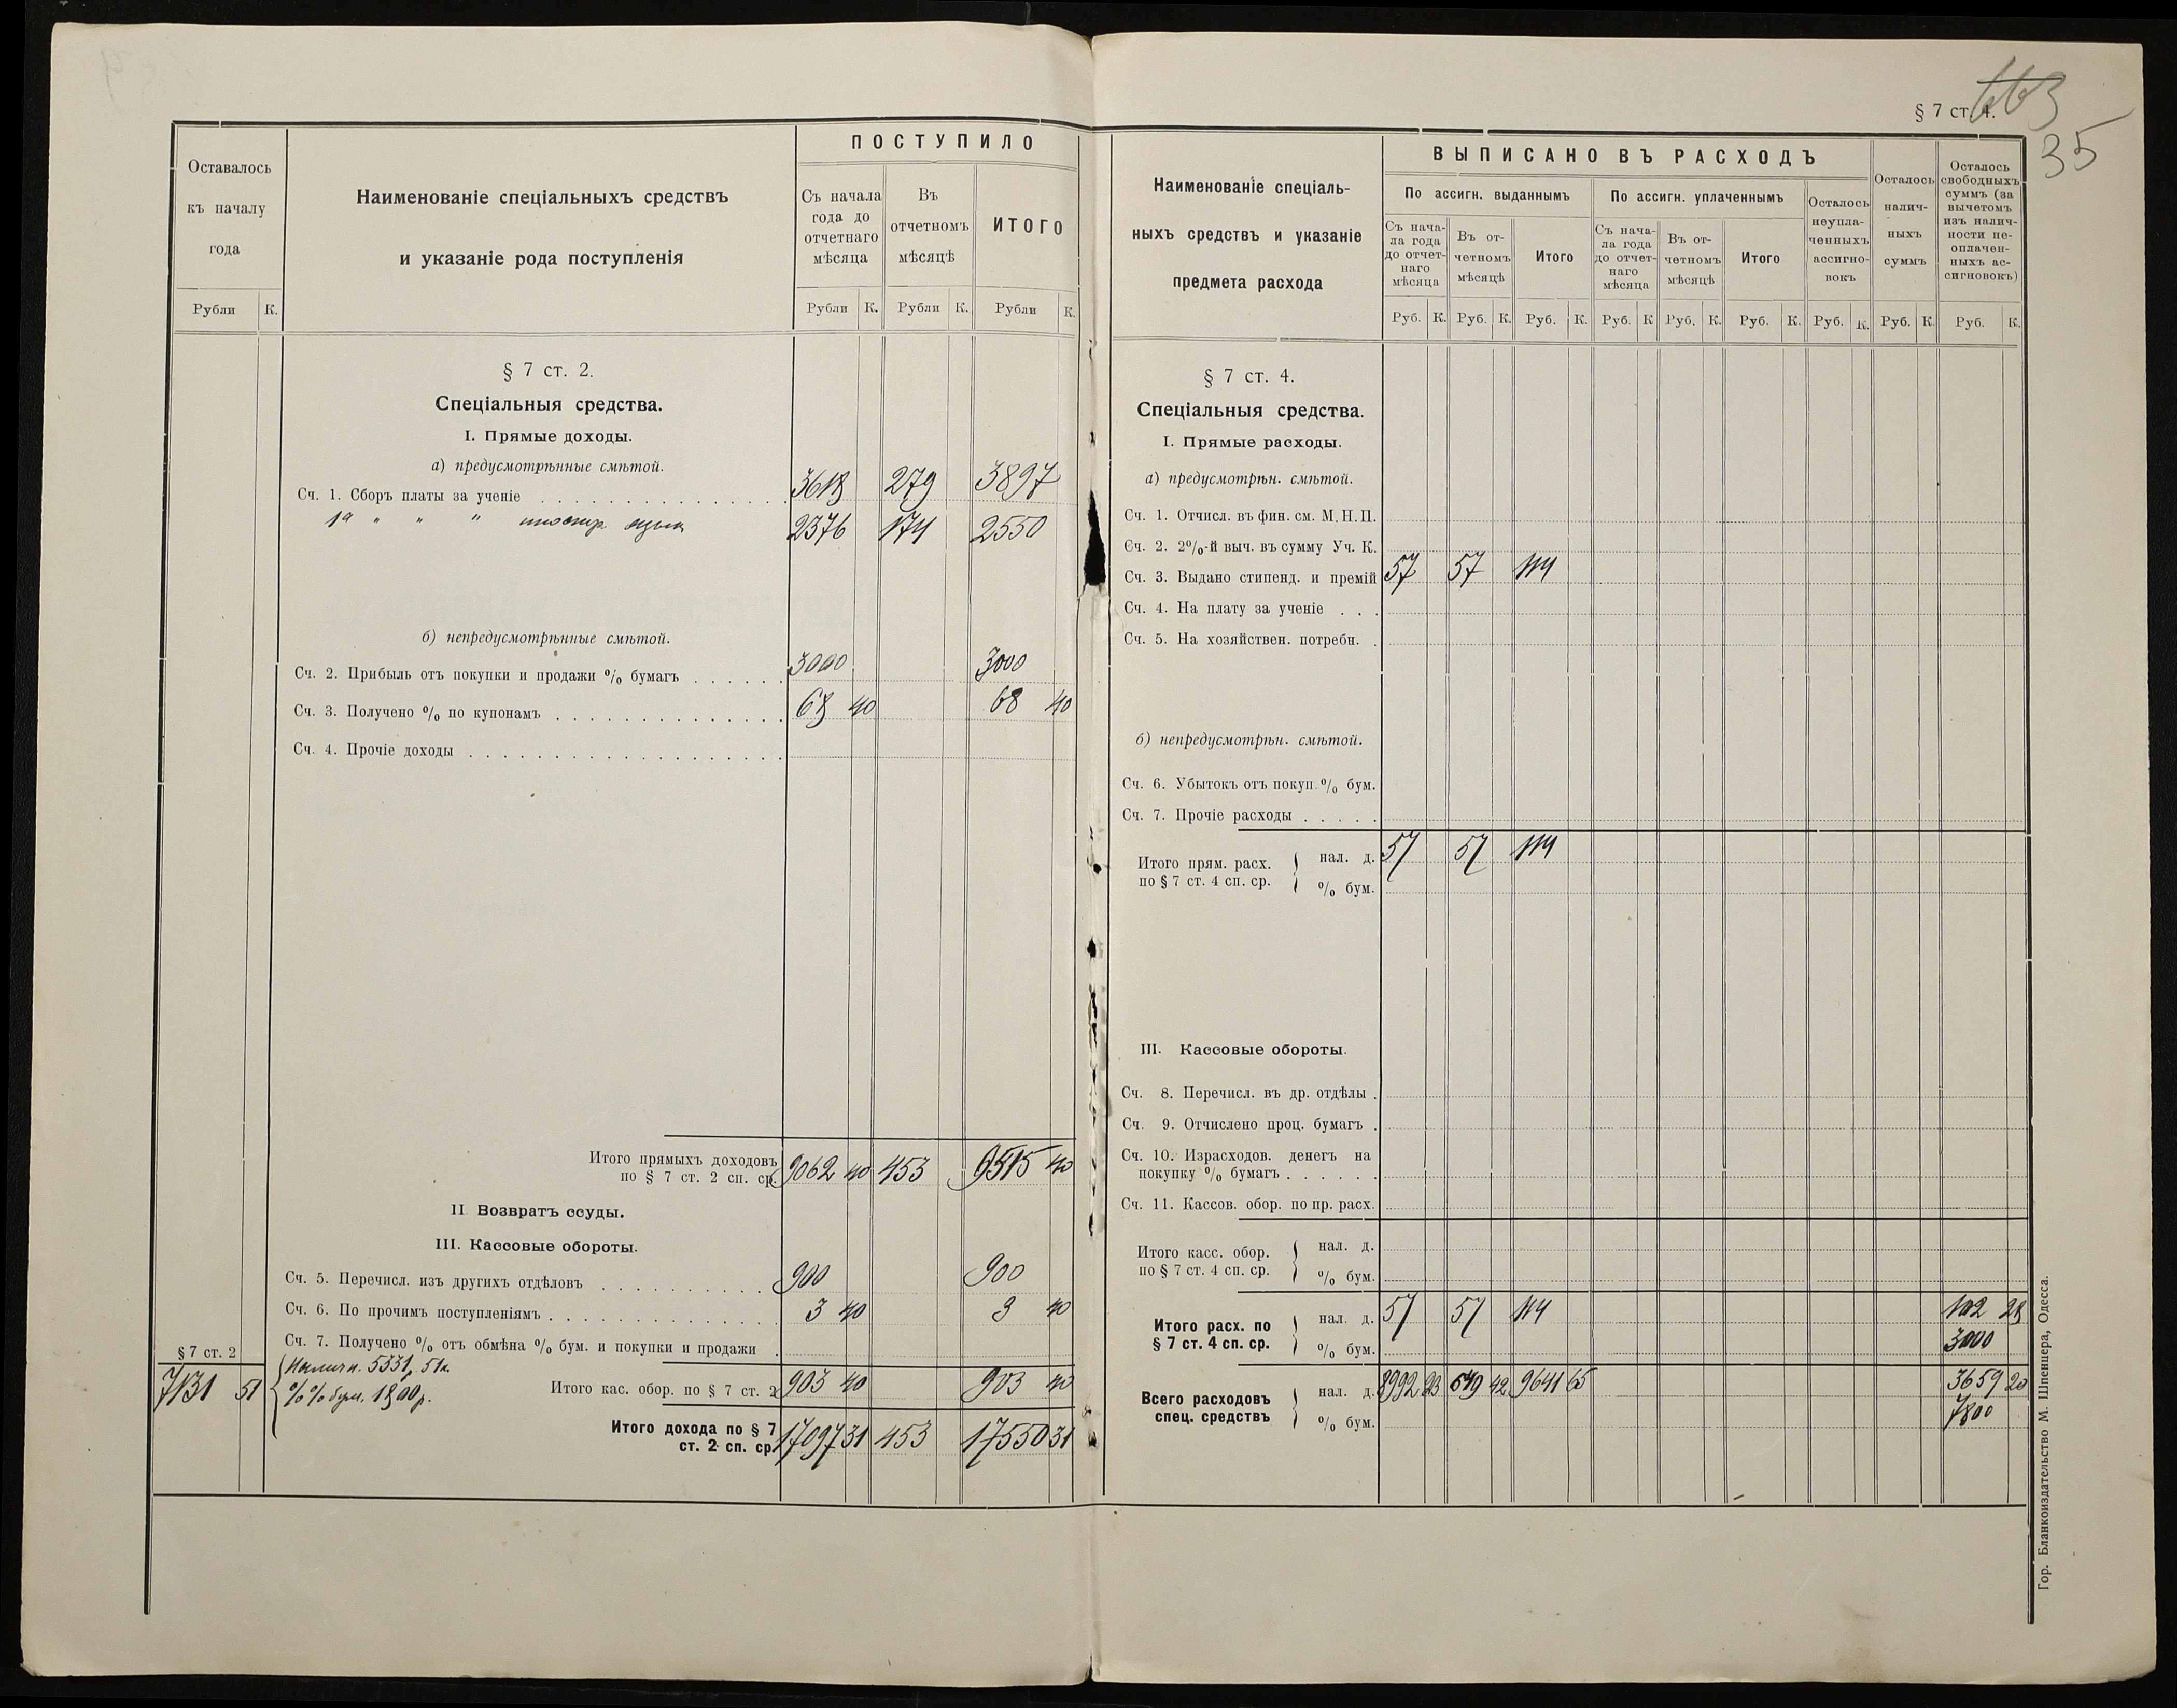 § 7 ст. 4.
35
Оставалось къ началу года
Рубли К.
Наименованіе спеціальныхъ средствъ
и указаніе рода поступленія
ПОСТУПИЛО
Съ начала года до отчетнаго мѣсяца
Въ отчетномъ мѣсяцѣ
ИТОГО
Рубли К. Рубли К. Рубли К.
§ 7 ст. 2.
Спеціальныя средства.
I. Прямые доходы.
а) предусмотрѣнные смѣтой.
Сч. 1. Сборъ платы за ученіе 3618 279 3897
1а " " " иностр. язык 2376 174 2550
б) непредусмотрѣнные смѣтой.
Сч. 2. Прибыль отъ покупки и продажи % бумагъ 3000 3000
Сч. 3. Получено % по купонамъ 68 40 68 40
Сч. 4. Прочіе доходы
Итого прямыхъ доходовъ
по § 7 ст. 2 сп. ср. 9062 40 453 9515 40
II Возвратъ ссуды.
III. Кассовые обороты.
Сч. 5. Перечисл. изъ другихъ отдѣловъ 900 900
Сч. 6. По прочимъ поступленіямъ 3 40 3 40
Сч. 7. Получено % отъ обмѣна % бум. и покупки и продажи
§ 7 ст. 2
7131 51
Наличн. 5331 р. 51 к.
% % бум. 1800 р.
Итого кас. обор. по § 7 ст. 2 903 40 903 40
Итого дохода по § 7
ст. 2 сп. ср. 17097 31 453 17550 31
Наименованіе спеціаль-
ныхъ средствъ и указаніе
предмета расхода
ВЫПИСАНО ВЪ РАСХОДЪ
По ассигн. выданнымъ
Съ нача-
ла года
до отчет-
наго
мѣсяца
Въ от-
четномъ
мѣсяцѣ
Итого
По ассигн. уплаченнымъ
Съ нача-
ла года
до отчет-
наго
мѣсяца
Въ от-
четномъ
мѣсяцѣ
Итого
Осталось
неупла-
ченныхъ
ассигно-
вокъ
Осталось
налич-
ныхъ
суммъ
Осталось
свободныхъ
суммъ (за
вычетомъ
изъ налич-
ности не-
оплачен-
ныхъ ас-
сигновокъ)
Руб. К. Руб. К. Руб. К. Руб. К Руб. К. Руб. К. Руб. К. Руб. К. Руб. К.
§ 7 ст. 4.
Спеціальныя средства.
I. Прямые расходы.
а) предусмотрѣн. смѣтой.
Сч. 1. Отчисл. въ фин. см. М. Н. П.
Сч. 2. 2%-й выч. въ сумму Уч. К.
Сч. 3. Выдано стипенд. и премій 57 57 114
Сч. 4. На плату за ученіе
Сч. 5. На хозяйствен. потребн.
б) непредусмотрѣн. смѣтой.
Сч. 6. Убытокъ отъ покуп. % бум.
Сч. 7. Прочіе расходы
Итого прям. расх.
по § 7 ст. 4 сп. ср.
нал. д. 57 57 114
% бум.
III. Кассовые обороты.
Сч. 8. Перечисл. въ др. отдѣлы
Сч. 9. Отчислено проц. бумагъ
Сч. 10. Израсходов. денегъ на
покупку % бумагъ
Сч. 11. Кассов. обор. по пр. расх.
Итого касс. обор.
по § 7 ст. 4 сп. ср.
нал. д.
% бум.
Итого расх. по
§ 7 ст. 4 сп. ср.
нал. д. 57 57 114 102 28
% бум. 3000
Всего расходовъ
спец. средствъ
нал. д. 8992 23 649 42 9641 65 3659 20
% бум. 7800
Гор. Бланкоиздательство М. Шпенцера, Одесса.